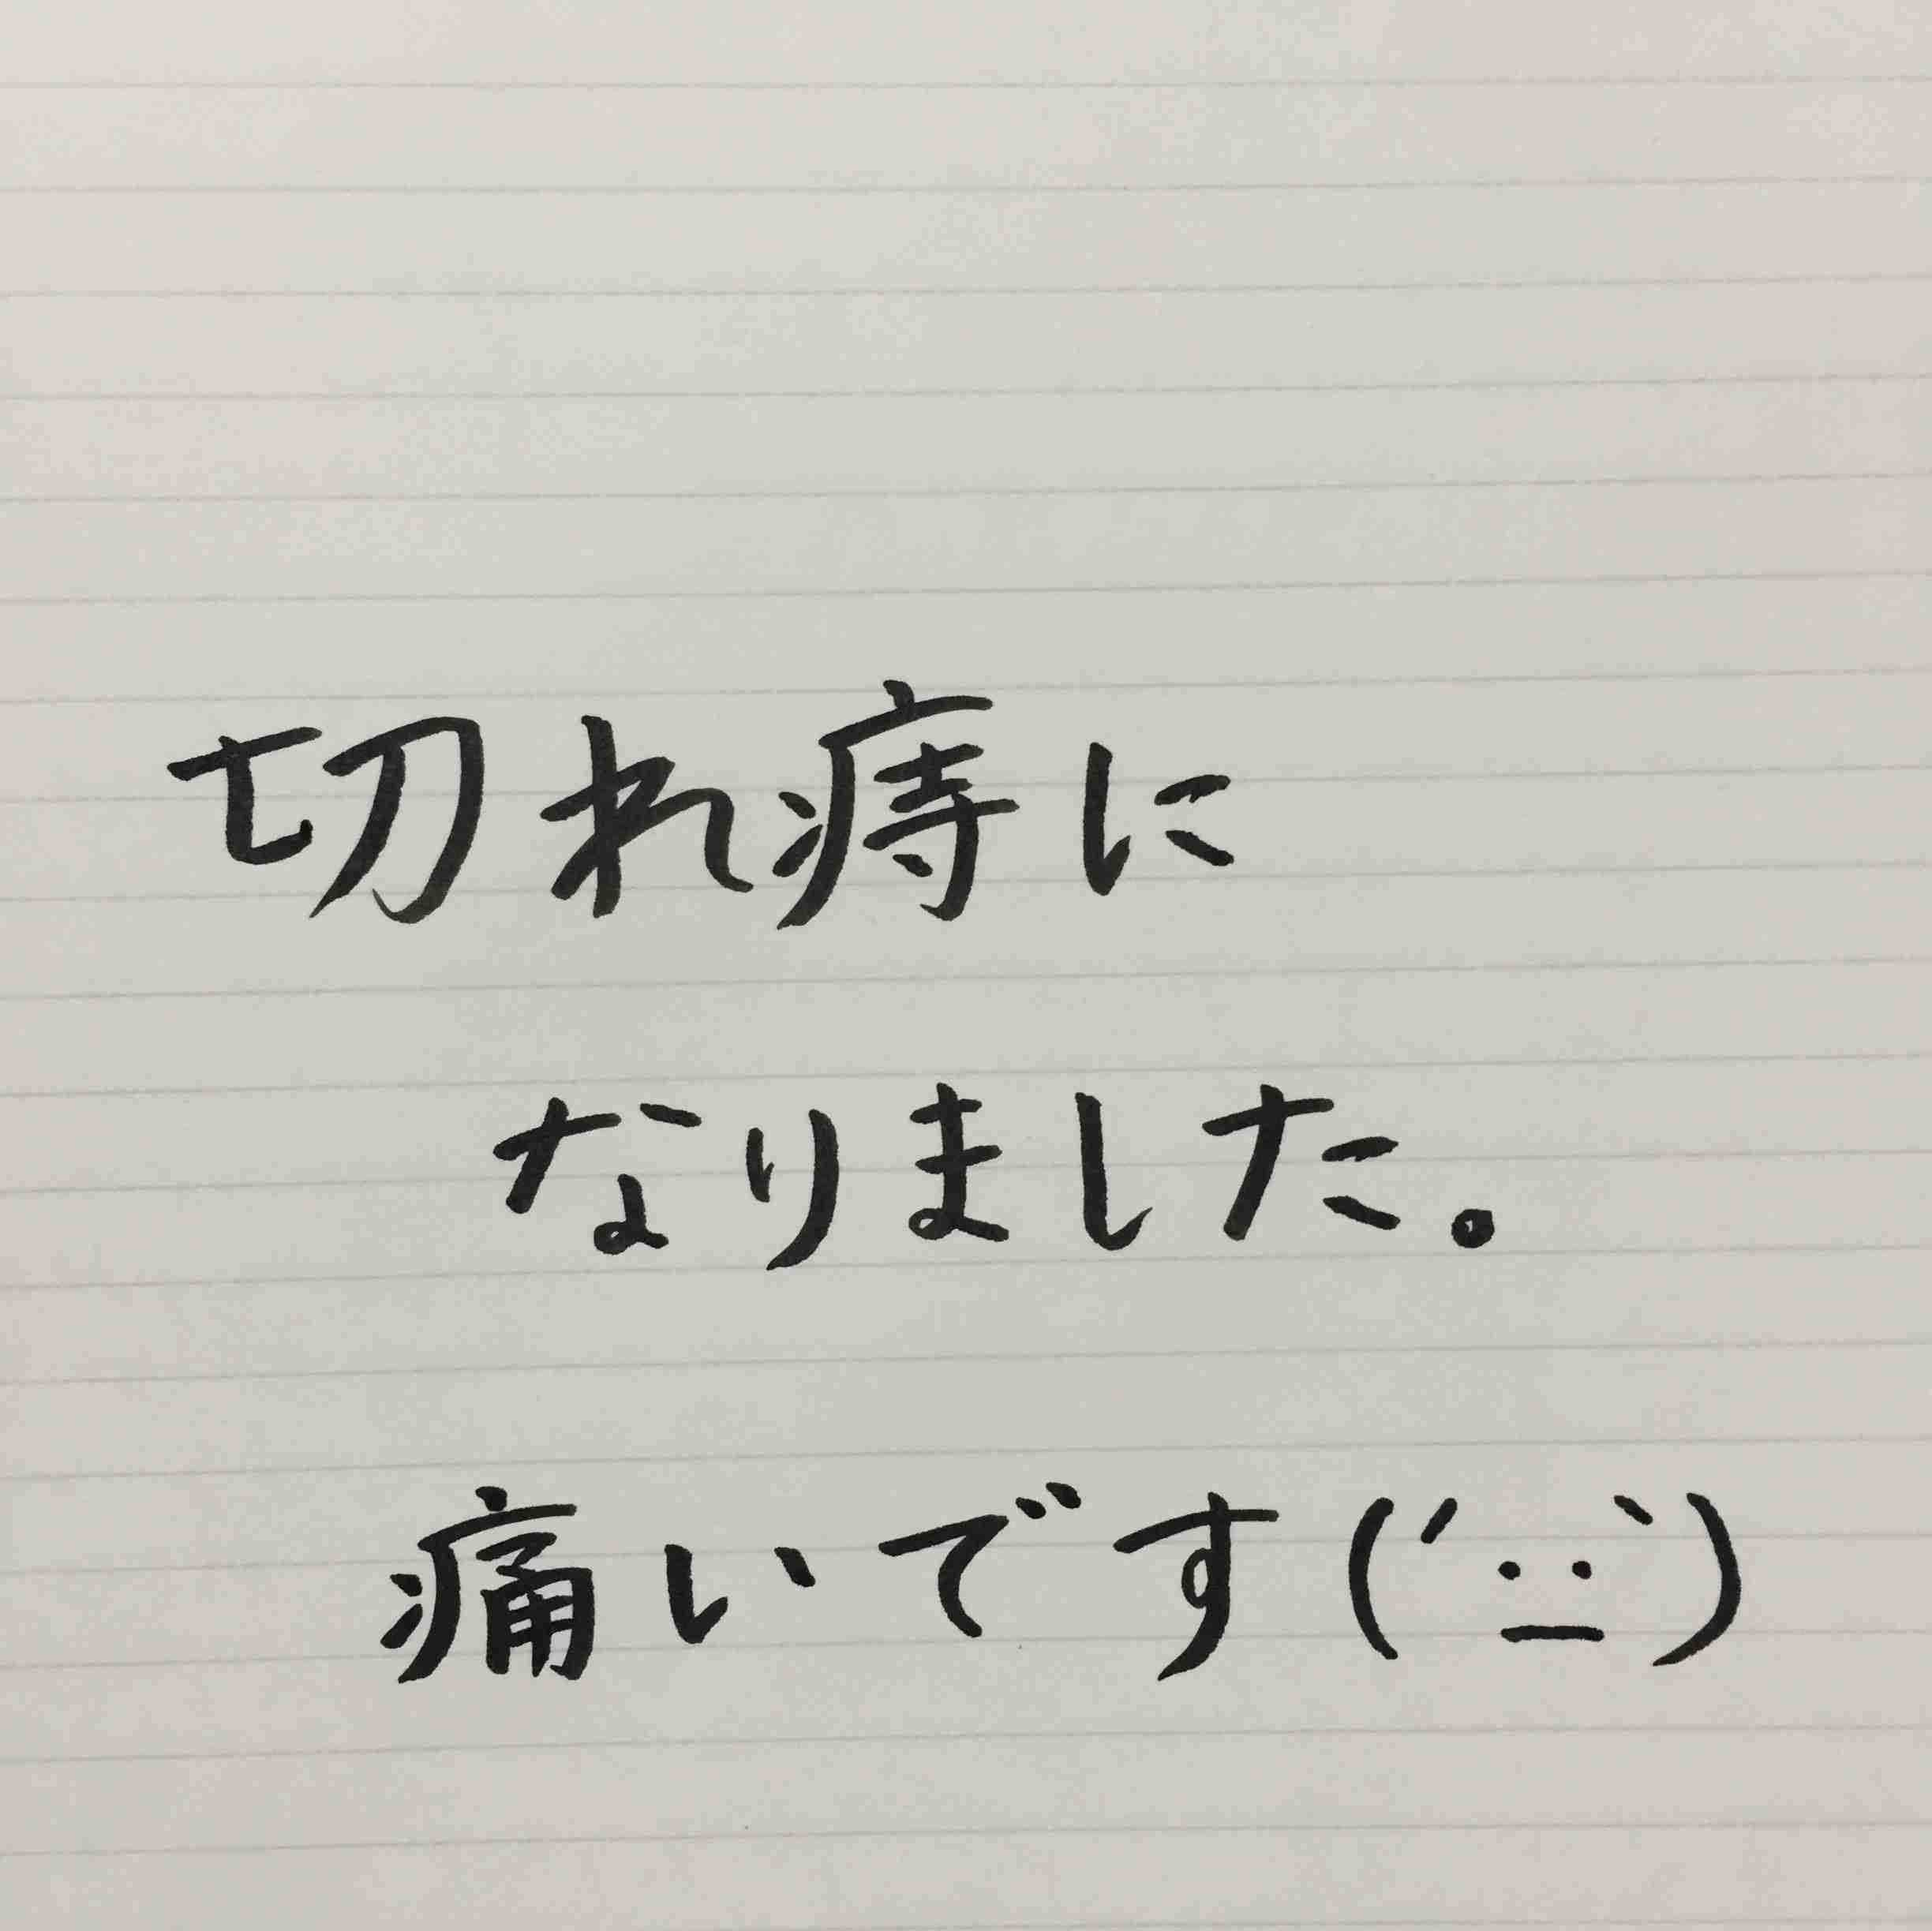 切れ痔に
なりました。
痛いです(´･･̲｀)